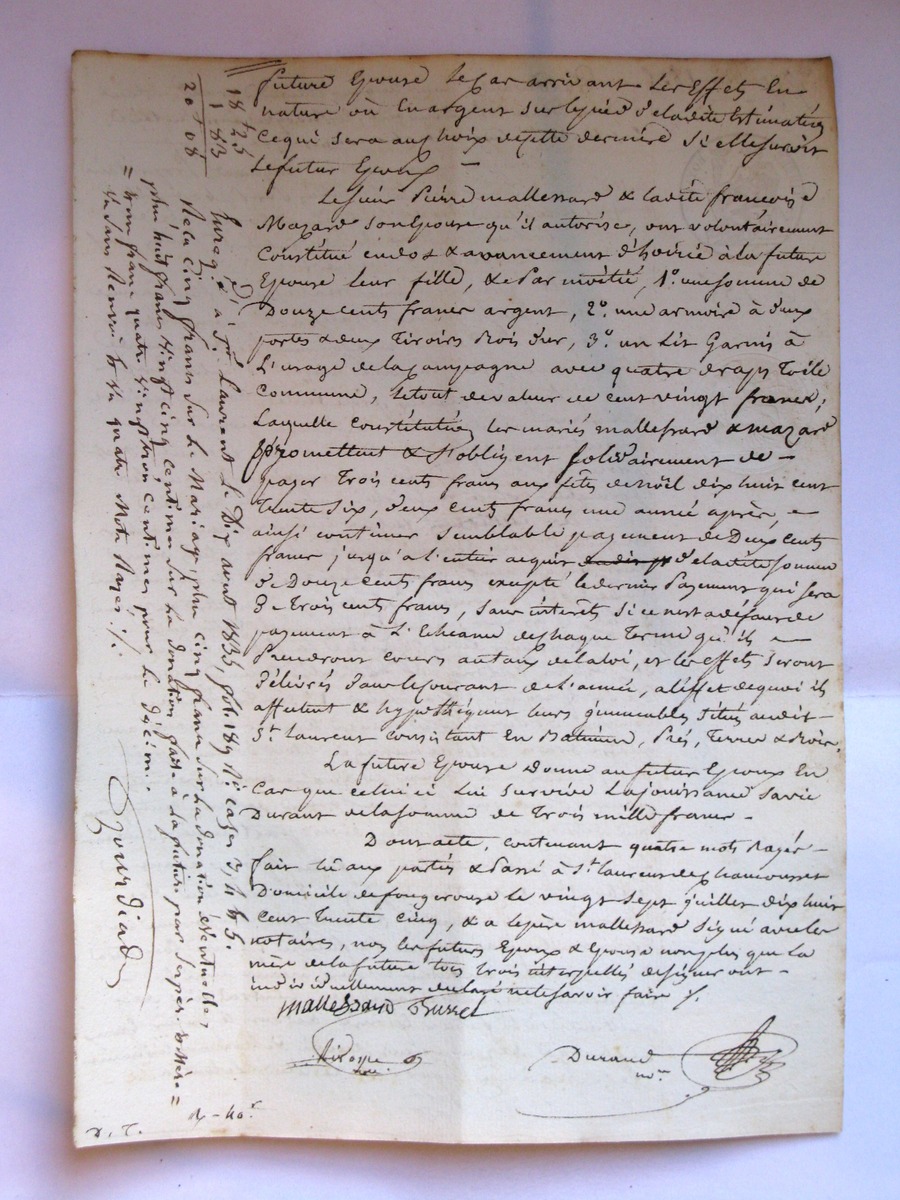 future Epouse le cas arrivant les Effets En
nature où En argent sur le pied de la dite Estimation
Ce qui sera au choix de cette dernière si elle survit
le futur Epoux —
Le sieur Pierre mallessard & la dite françoise
Mazard son Epouse qu'il autorise, ont volontairement
Constitué en dot & avancement d'hoirie à la future
Epouse leur fille, & par moitié, 1.º une somme de
Douze cents francs argent, 2.º une armoire à deux
portes & deux Tiroirs Bois dur, 3.º un Lit Garnis à
L'usage de la Campagne avec quatre draps Toile
Commune, le tout de valeur de cent vingt francs;
Laquelle constitution les mariés mallessard & mazard
promettent & s'obligent solidairement de —
payer Trois cents francs aux fêtes de noël dix huit cent
Trente Six, deux cents francs une année après, &
ainsi continuer semblable payement de Deux cents
francs jusqu'a l'entier acquit de la dite somme
de Douze cents francs excepté le dernier Payement qui sera
de Trois cents francs, sans intérêts si ce n'est a défaut de
payement à L'Echéance de chaque Terme qu'ils —
Prendront cours au taux de la loi, et les effets seront
délivrés dans le courant de l'année, a l'effet de quoi ils
affectent & hypothèquent leurs immeubles situés au dit
St. laurent consistant En Batiment, Prés, Terres & Bois.
La future Epouse donne au futur Epoux En
Cas que celui ci Lui survive La jouissance sa vie
Durant de la somme de Trois mille francs —
Dont acte, contenant quatre mots rayés —
fait lu aux parties & Passé à St. laurent de chamousset
Domicile de fougerouse le vingt sept juillet dix huit
cent trente cinq, & a le père mallessard signé avec les
notaires, non les futurs Epoux & Epouse non plus que la
mère de la future tous trois interpellés de signer ont —
individuellement déclaré ne le savoir faire ./.
Mallessard
Durand
nore
18 25
1 83
20 08
Enregé à St. Laurent Le Dix aout 1835, fol. 189 Rº cases 3, 4 & 5.
Reçu cinq francs sur Le Mariage plus cinq francs sur La donation éventuelle,
plus huit francs vingt cinq centimes sur La donation faite à La future par ses père & Mère =
= & un franc quatre vingt trois centimes pour Le décime.
quatre Mots Rayés ./.
D. T.